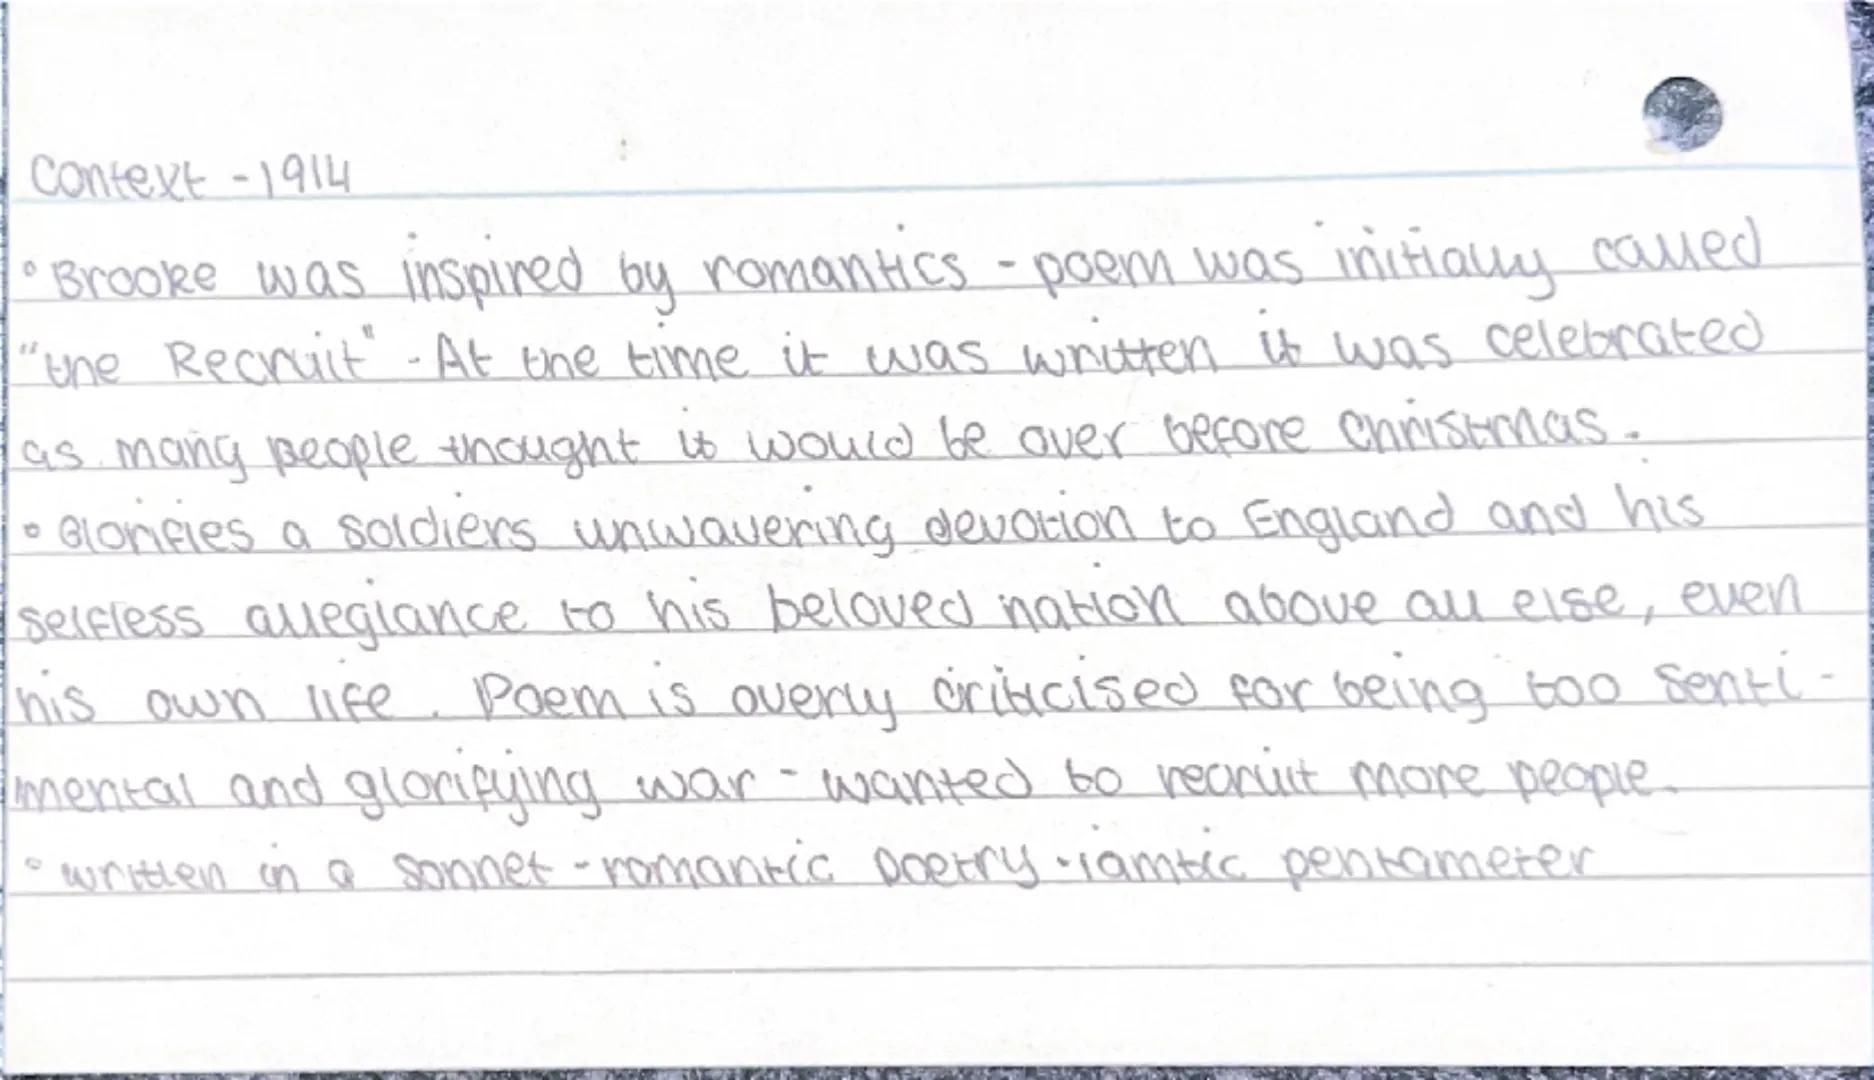 Context - 1914
° Brooke was inspired by romantics - poem was initially called
"the Recruit" - At the time it was written it was celebrated
as many people thought it would be over before Christmas.
° Glorifies a soldiers unwavering devotion to England and his
selfless allegiance to his beloved nation above all else, even
his own life. Poem is overly criticised for being too senti-
mental and glorifying war - wanted to recruit more people.
° written in a sonnet - romantic poetry - iambic pentameter